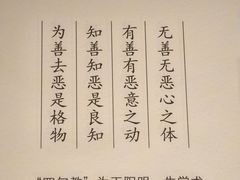 无善无恶心之体
有善有恶意之动
知善知恶是良知
为善去恶是格物
“四句教”为王阳明一生学术